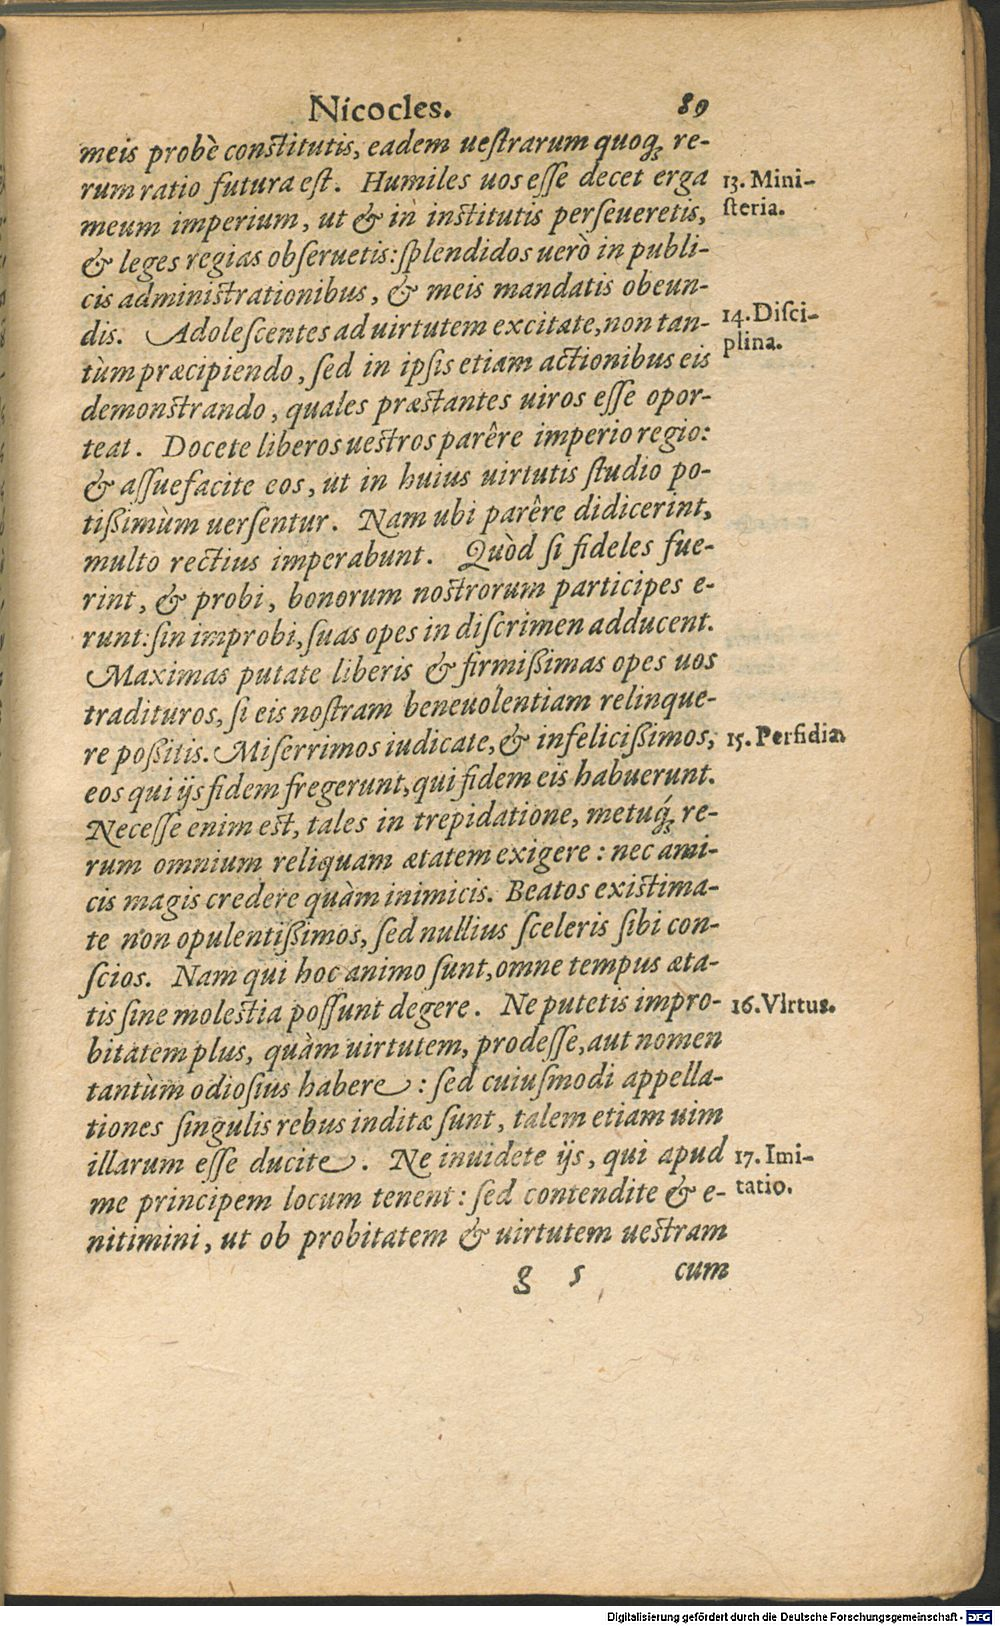 Nicocles. 89
meis probè constitutis, eadem uestrarum quoq; re-
rum ratio futura est. Humiles uos esse decet erga
13. Mini-
steria.
meum imperium, ut & in institutis perseueretis,
& leges regias obseruetis: splendidos uerò in publi-
cis administrationibus, & meis mandatis obeun-
dis. Adolescentes ad uirtutem excitate, non tan-
14. Disci-
plina.
tùm præcipiendo, sed in ipsis etiam actionibus eis
demonstrando, quales præstantes uiros esse opor-
teat. Docete liberos uestros parêre imperio regio:
& assuefacite eos, ut in huius uirtutis studio po-
tißimùm uersentur. Nam ubi parêre didicerint,
multo rectius imperabunt. Quòd si fideles fue-
rint, & probi, bonorum nostrorum participes e-
runt: sin improbi, suas opes in discrimen adducent.
Maximas putate liberis & firmißimas opes uos
tradituros, si eis nostram beneuolentiam relinque-
re poßitis. Miserrimos iudicate, & infelicißimos,
15. Perfidia.
eos qui ijs fidem fregerunt, qui fidem eis habuerunt.
Necesse enim est, tales in trepidatione, metuq́; re-
rum omnium reliquam ætatem exigere: nec ami-
cis magis credere quàm inimicis. Beatos existima-
te non opulentißimos, sed nullius sceleris sibi con-
scios. Nam qui hoc animo sunt, omne tempus æta-
tis sine molestia possunt degere. Ne putetis impro-
16. Virtus.
bitatem plus, quàm uirtutem, prodesse, aut nomen
tantùm odiosius habere: sed cuiusmodi appella-
tiones singulis rebus inditæ sunt, talem etiam uim
illarum esse ducite. Ne inuidete ijs, qui apud
17. Imi-
tatio.
me principem locum tenent: sed contendite & e-
nitimini, ut ob probitatem & uirtutem uestram
g 5 cum
Digitalisierung gefördert durch die Deutsche Forschungsgemeinschaft - DFG